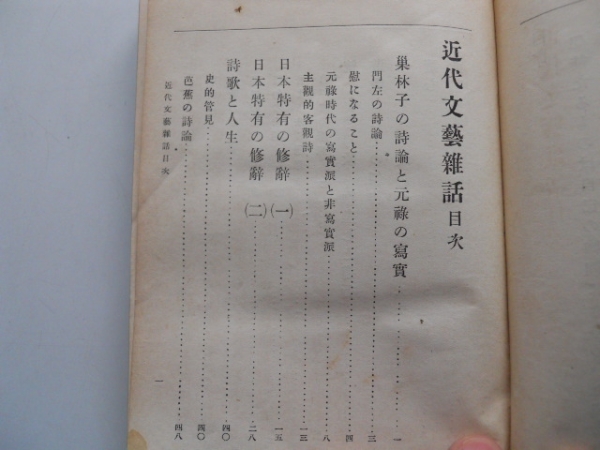 近代文藝雜話目次
巢林子の詩論と元祿の寫實……一
門左の詩論……三
慰になること……四
元祿時代の寫實派と非寫實派……八
主觀的客觀詩……一三
日本特有の修辭(一)……一五
日本特有の修辭(二)……二八
詩歌と人生……四〇
史的管見……四〇
芭蕉の詩論……四八
近代文藝雜話目次
一